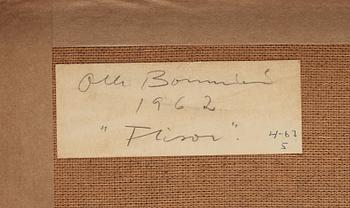 Olle Bonniér
1962
"Flisor".
4-63
5